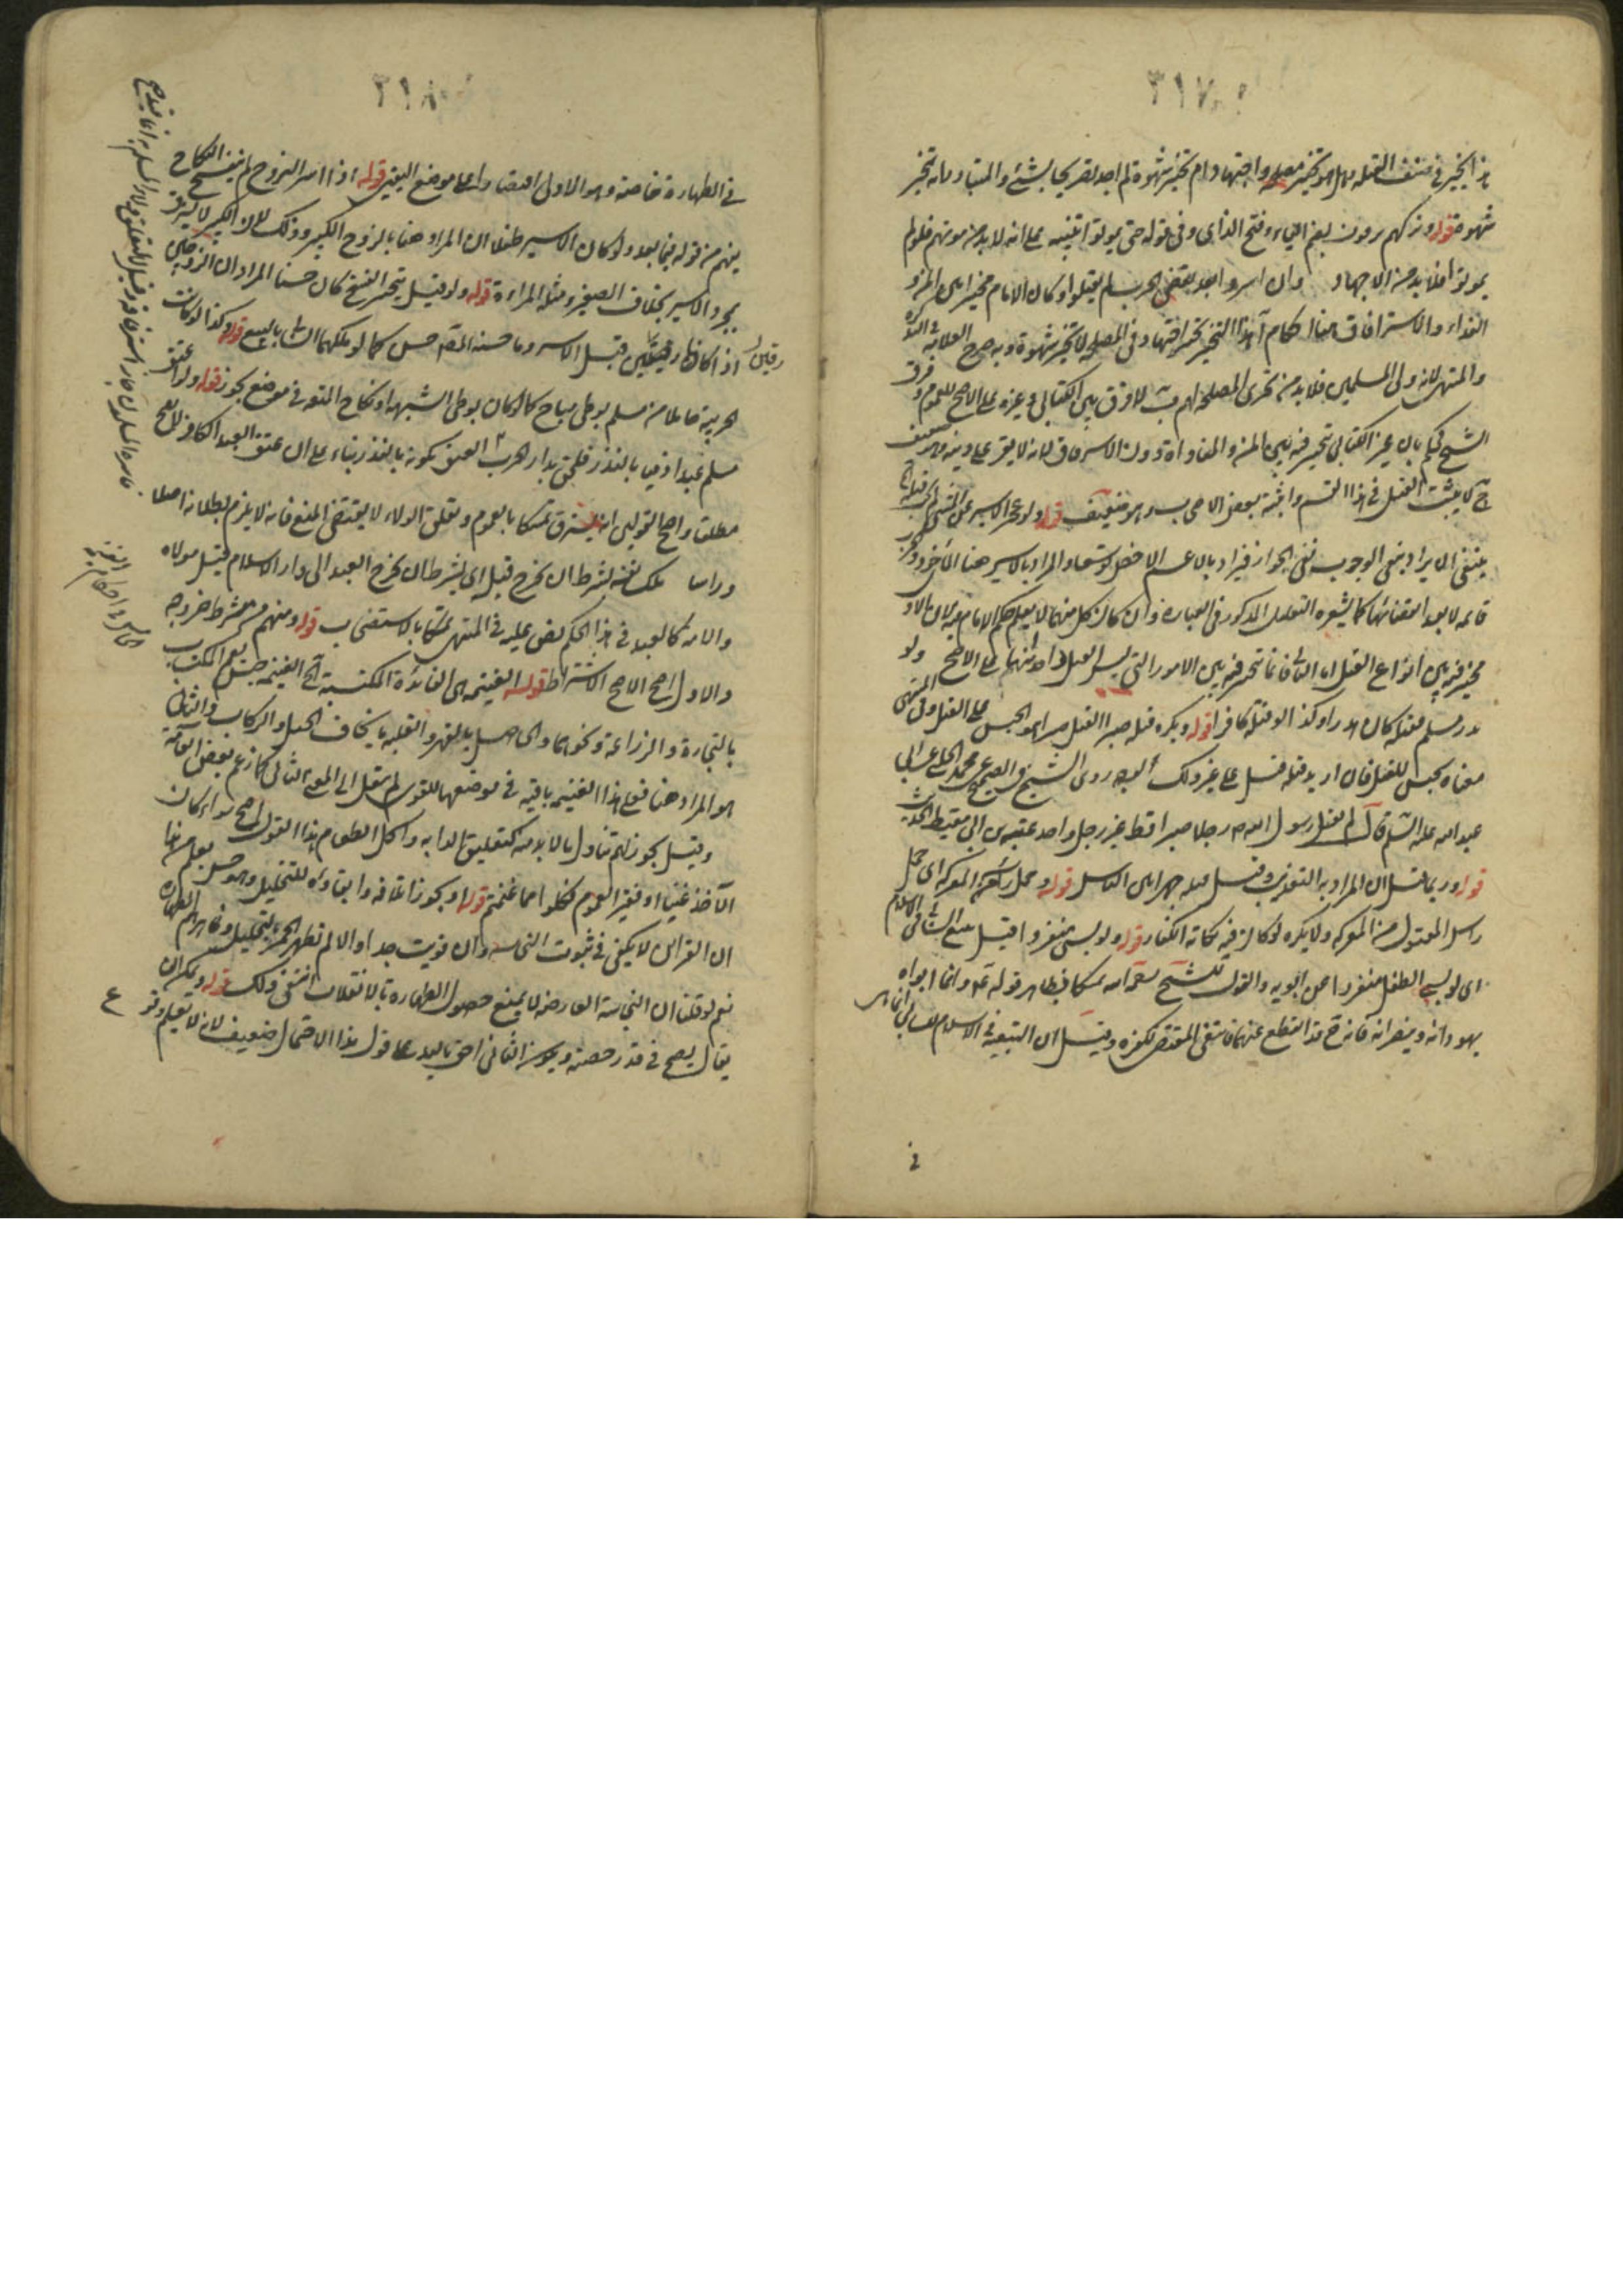 ٣١٧
هذا التخيير في صنف القتلة وهل هو تخيير مصلحة واجتهاد ام تخيير شهوة لم اجد تصريحا بشئ والمتبادر انه تخيير
شهوة قوله وتركهم ينزفون بضم الياء وفتح الزاي وفي قوله حتى يموتوا تنبيه على انه لابد من موتهم فلو لم
يموتوا فلابد من الاجهاد وان اسروا بعد تقضي الحرب لم يقتلوا وكان الامام مخيرا بين المن و
الفداء والاسترقاق هنا احكام آ هذا التخيير تخيير اجتهاد في المصلحة لا تخيير شهوة وبه صرح العلامة في التذكرة
والمنتهى لانه ولي المسلمين فلابد من تحري المصلحة لهم ب لا فرق بين الكتابي وغيره على الاصح للعموم و فرق
الشيخ فحكم بان غير الكتابي يتخير فيه بين المن والمفاداة دون الاسترقاق لانه لا يقر على دينه وهو ضعيف
ج لا يثبت القتل في هذا القسم واثبته بعض الاصحاب وهو ضعيف قوله ولو عجز الاسير عن المشي لم يجب قتله
ينبغي ان يراد بنفي الوجوب نفي الجواز فيراد بالاعم الاخص توسعا والمراد بالاسير هنا المأخوذ والحرب
قائمة لا بعد انقضائها كما يشعر به التعليل المذكور في العبارة وان كان كل منهما لا يعلم حكم الامام فيه لان الاول
مخير فيه بين انواع القتل اما الثاني فانما يتخير فيه بين الامور التي ليس القتل واحدا منها على الاصح ولو
بدر مسلم فقتله كان هدرا وكذا لو قتله كافر قوله ويكره قتله صبرا القتل صبرا هو الحبس على القتل وفي المنتهى
معناه يحبس للقتل فان اريد قتله قتل على غير ذلك الوجه روى الشيخ في الصحيح عن محمد الحلبي عن ابي
عبد الله عليه السلام قال لم يقتل رسول الله ص رجلا صبرا قط غير رجل واحد عقبة بن ابي معيط الحديث
قوله وربما قيل ان المراد به التعذيب وقيل قتله جهرا بين الناس قوله وحمل راسه من المعركة اي حمل
راس المقتول من المعركة ولا يكره لو كان فيه نكاية الكفار قوله ولو سبي منفردا قيل يتبع السابي في الاسلام
اي لو سبي الطفل منفردا عن ابويه والقول للشيخ رحمه الله تمسكا بظاهر قوله ع وانما ابواه
يهودانه وينصرانه فانه ح قد انقطع عنهما فينتفي المقتضي لكفره وقيل ان التبعية في الاسلام للسابي انما هي
في
٣١٨
في الطهارة خاصة وهو الاول اقتصارا على موضع اليقين قوله اذا اسر الزوج لم ينفسخ النكاح
يفهم من قوله فيما بعد ولو كان الاسير طفلا ان المراد هنا بالزوج الكبير وذلك لان الكبير لا يسترق
بمجرد الاسر بخلاف الصغير ومثله المراءة قوله ولو قيل يتخير الفسخ كان حسنا المراد ان الزوجين
اذا كانا رقيقين قبل الاسر وما حسنه المص حسن كما لو ملكهما الثاني بالبيع قوله وكذا لو كانت
الحربية حاملا من مسلم بوطي مباح كما لو كان بوطي الشبهة او نكاح المتعة في موضع يجوز قوله ولو اعتق
مسلم عبدا ذميا بالنذر فلحق بدار الحرب العتق بكونه بالنذر بناء على ان عتق العبد الكافر لا يصح
مطلقا واصح القولين انه يسترق تمسكا بالعموم وتعلق الولاء لا يقتضي المنع فانه لا يلزم بطلانه اصلا
وراسا ملك نفسه بشرط ان يخرج قبل اي بشرط ان يخرج العبد الى دار الاسلام قبل مولاه
والامة كالعبد في هذا الحكم نص عليه في المنتهى تمسكا بالاستصحاب قوله ومنهم من لم يشترط خروجه
والاول اصح الاصح الاشتراط قوله الغنيمة هي الفائدة المكتسبة الخ الغنيمة جنس يعم المكتسب
بالتجارة والزراعة ونحوهما والحاصل بالقهر والغلبة بايجاف الخيل والركاب والثاني
هو المراد هنا فعلى هذا الغنيمة باقية في موضعها اللغوي لم تنقل الى المعنى الثاني كما زعم بعض العامة
وقيل يجوز لهم تناول ما لابد منه كتعليق الدابة واكل الطعام هذا القول اصح سواء كان
الآخذ غنيا او فقيرا لعموم فكلوا مما غنمتم قوله ويجوز اتلافه وابقاؤه للتخليل وهو حسن يعلم من هذا
ان القرائن لا يكفي في ثبوت النجاسة وان قويت جدا والا لم تطهر الخمر بالتخليل وظاهرهم الطهارة
نعم لو قلنا ان النجاسة العارضة لا يمنع حصول الطهارة بالانقلاب انتفى ذلك قوله ويمكن ان
يقال يصح في قدر حصته ويجوز الثاني احق باليد على قول هذا الاحتمال ضعيف لانه لا تعليم وقر ع
رقيقين